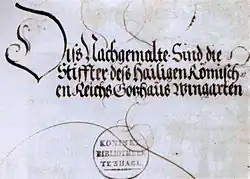 Diß Nachgemalte Sind die
Stiffter deß Hailigen Römisch-
en Reichs Gottshaus Wingarten
KONINKL.
BIBLIOTHEEK
TE'SHAGE.